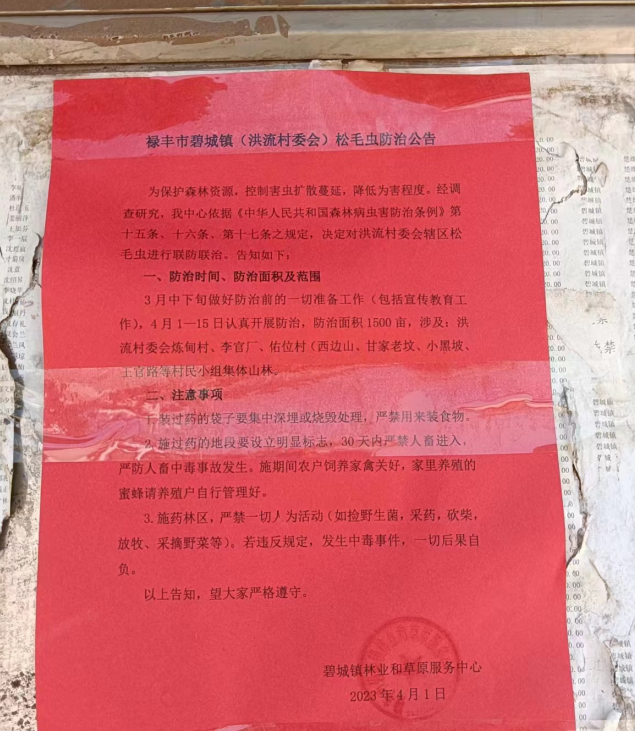 禄丰市碧城镇（洪流村委会）松毛虫防治公告
为保护森林资源，控制害虫扩散蔓延，降低为害程度。经调
查研究，我中心依据《中华人民共和国森林病虫害防治条例》第
十五条、十六条、第十七条之规定，决定对洪流村委会辖区松
毛虫进行联防联治。告知如下：
一、防治时间、防治面积及范围
3月中下旬做好防治前的一切准备工作（包括宣传教育工
作），4月1—15日认真开展防治，防治面积1500亩，涉及：洪
流村委会炼甸村、李官厂、佑位村（西边山、甘家老坟、小黑坡、
上官路等村民小组集体山林。
二、注意事项
1.装过药的袋子要集中深埋或烧毁处理，严禁用来装食物。
2.施过药的地段要设立明显标志，30天内严禁人畜进入，
严防人畜中毒事故发生。施期间农户饲养家禽关好，家里养殖的
蜜蜂请养殖户自行管理好。
3.施药林区，严禁一切人为活动（如捡野生菌，采药，砍柴，
放牧、采摘野菜等）。若违反规定，发生中毒事件，一切后果自
负。
以上告知，望大家严格遵守。
碧城镇林业和草原服务中心
2023年4月1日